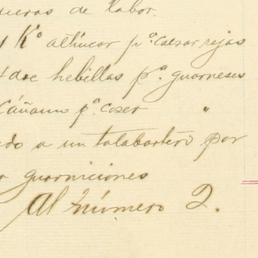 de labor.
1 K.º alfileres p.ª coser rejas
doc hebillas p.ª guarneses
Cáñamo p.ª coser "
a un talabartero por
guarniciones
Al número 2.